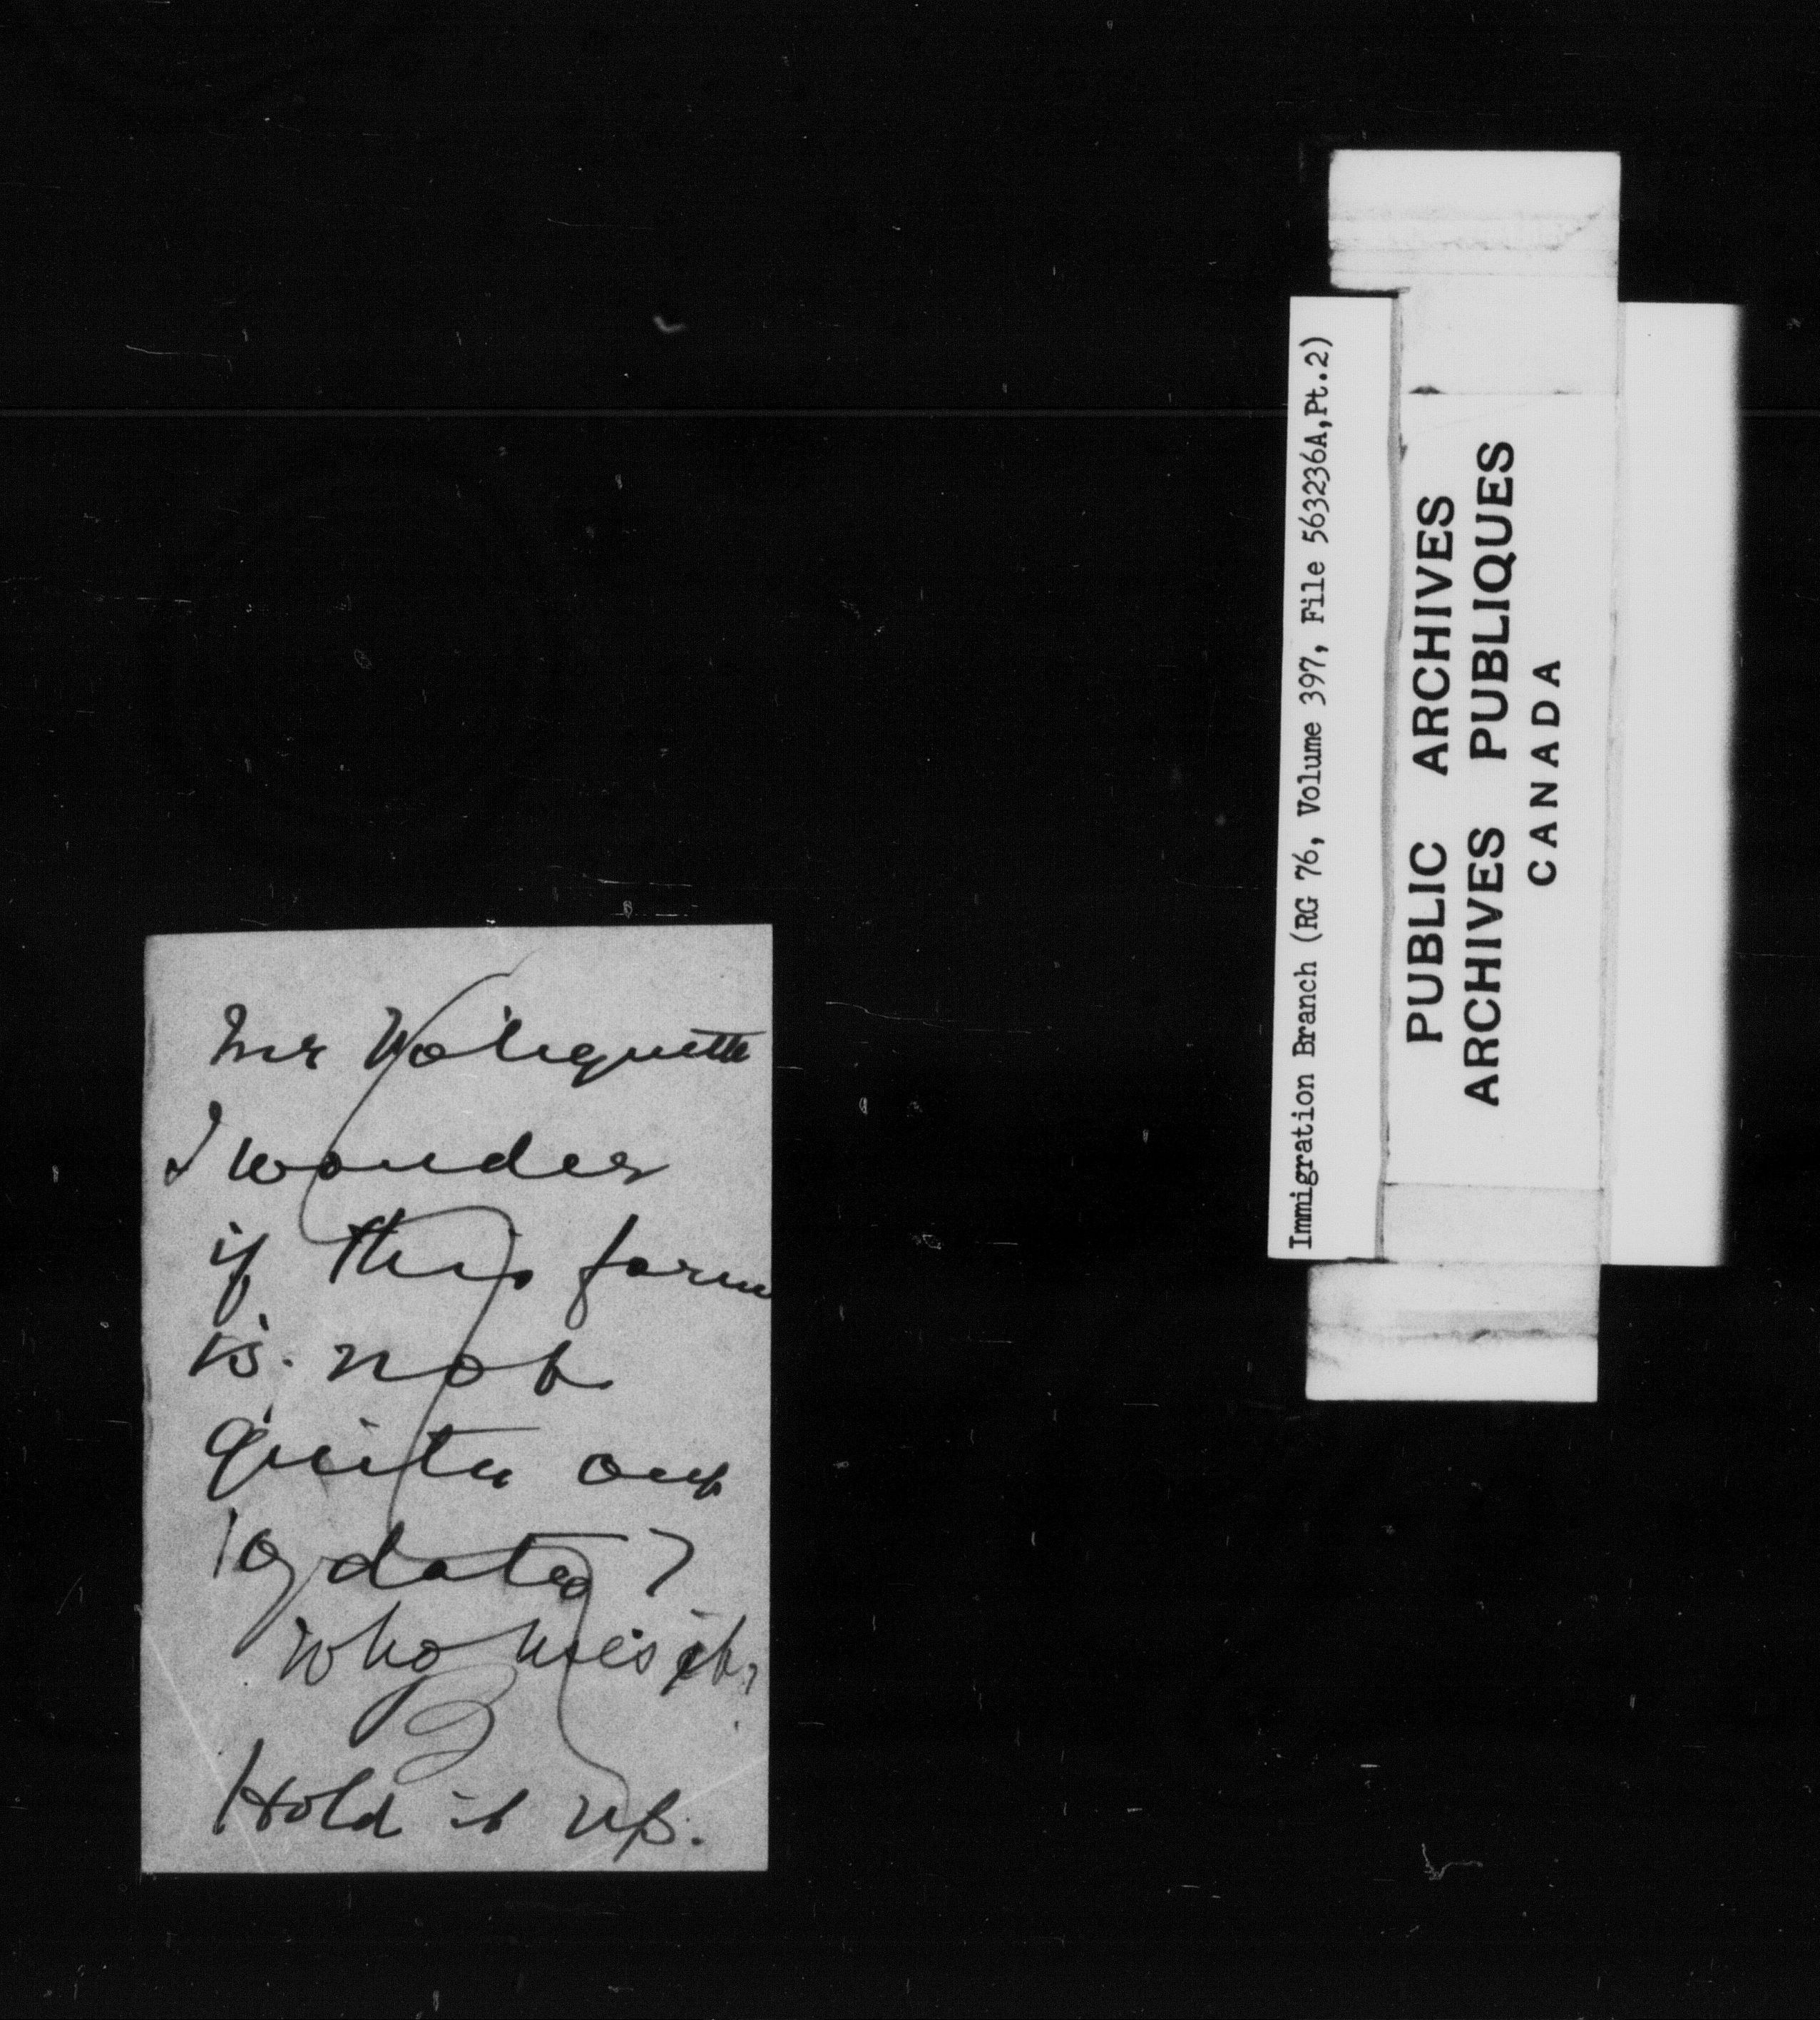 Mr Voliquette
I wonder
if this form
is not
quite out
of date?
Who uses it?
Hold it up.
Immigration Branch (RG 76, Volume 397, File 563236A,Pt.2)
PUBLIC ARCHIVES
ARCHIVES PUBLIQUES
CANADA